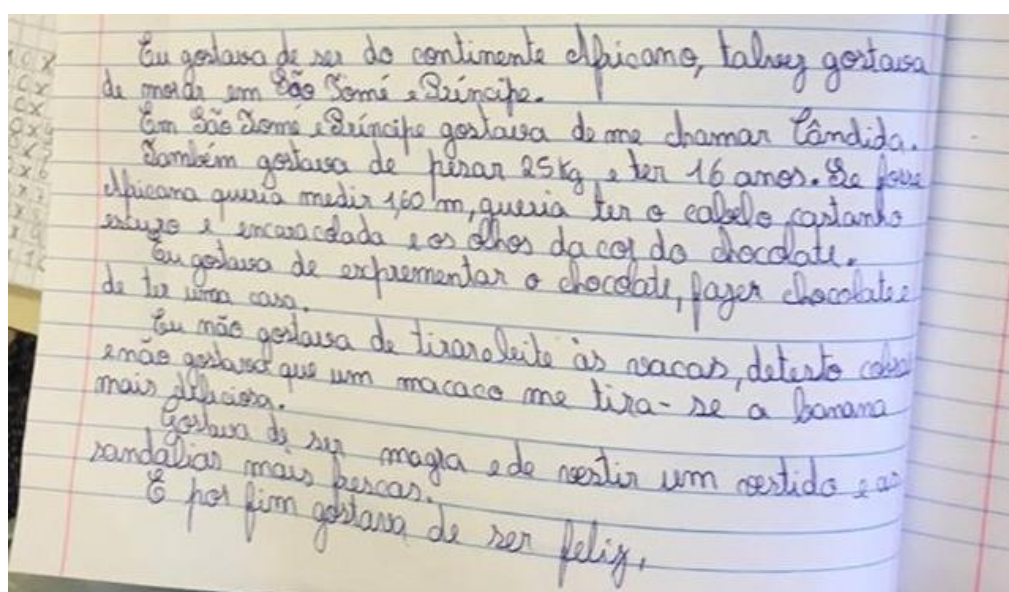 Eu gostava de ser do continente Africano, talvez gostava
de morar em São Tomé e Príncipe.
Em São Tomé e Príncipe gostava de me chamar Cândida.
Também gostava de pesar 25kg e ter 16 anos. Se fosse
Africana queria medir 1,60 m, queria ter o cabelo castanho
escuro e encaracolada e os olhos da cor do chocolate.
Eu gostava de exprementar o chocolate, fazer chocolate e
de ter uma casa.
Eu não gostava de tirar o leite às vacas, detesto
e não gostava que um macaco me tira-se a banana
mais deliciosa.
Gostava de ser magra e de vestir um vestido e as
sandálias mais frescas.
E por fim gostava de ser feliz.